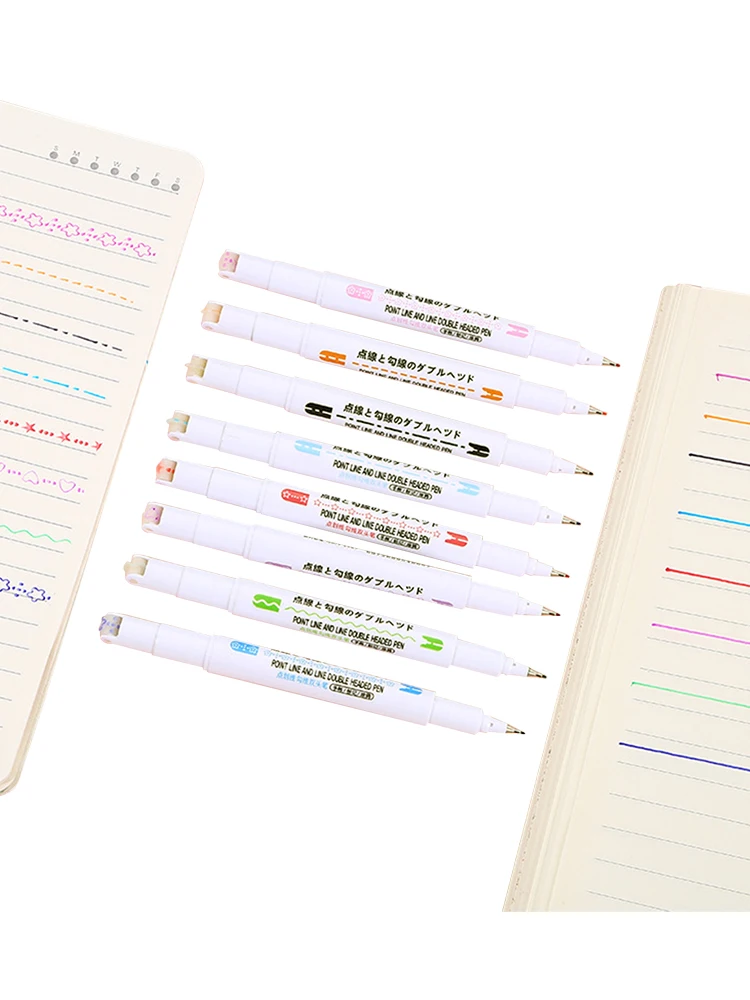 S M T W T F S
点線と勾線のダブルヘッド
POINT LINE AND LINE DOUBLE HEADED PEN
点線と勾線のダブルヘッド
POINT LINE AND LINE DOUBLE HEADED PEN
点線と勾線のダブルヘッド
POINT LINE AND LINE DOUBLE HEADED PEN
点線と勾線のダブルヘッド
POINT LINE AND LINE DOUBLE HEADED PEN
点線と勾線のダブルヘッド
POINT LINE AND LINE DOUBLE HEADED PEN
点線と勾線のダブルヘッド
点線と勾線のダブルヘッド
POINT LINE AND LINE DOUBLE HEADED PEN
POINT LINE AND LINE DOUBLE HEADED PEN